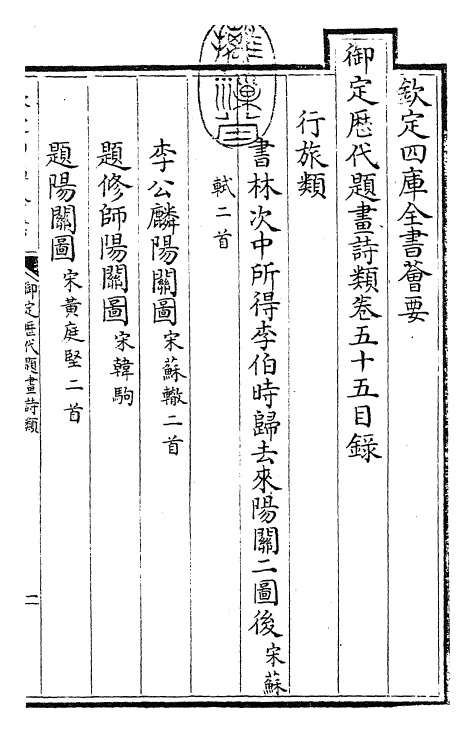 欽定四庫全書薈要
御定歴代題畫詩類卷五十五目錄
行旅類
書林次中所得李伯時歸去來陽關二圖後宋蘇
軾二首
李公麟陽關圖宋蘇轍二首
題修師陽關圖宋韓駒
題陽關圖宋黃庭堅二首
御定歴代題畫詩類